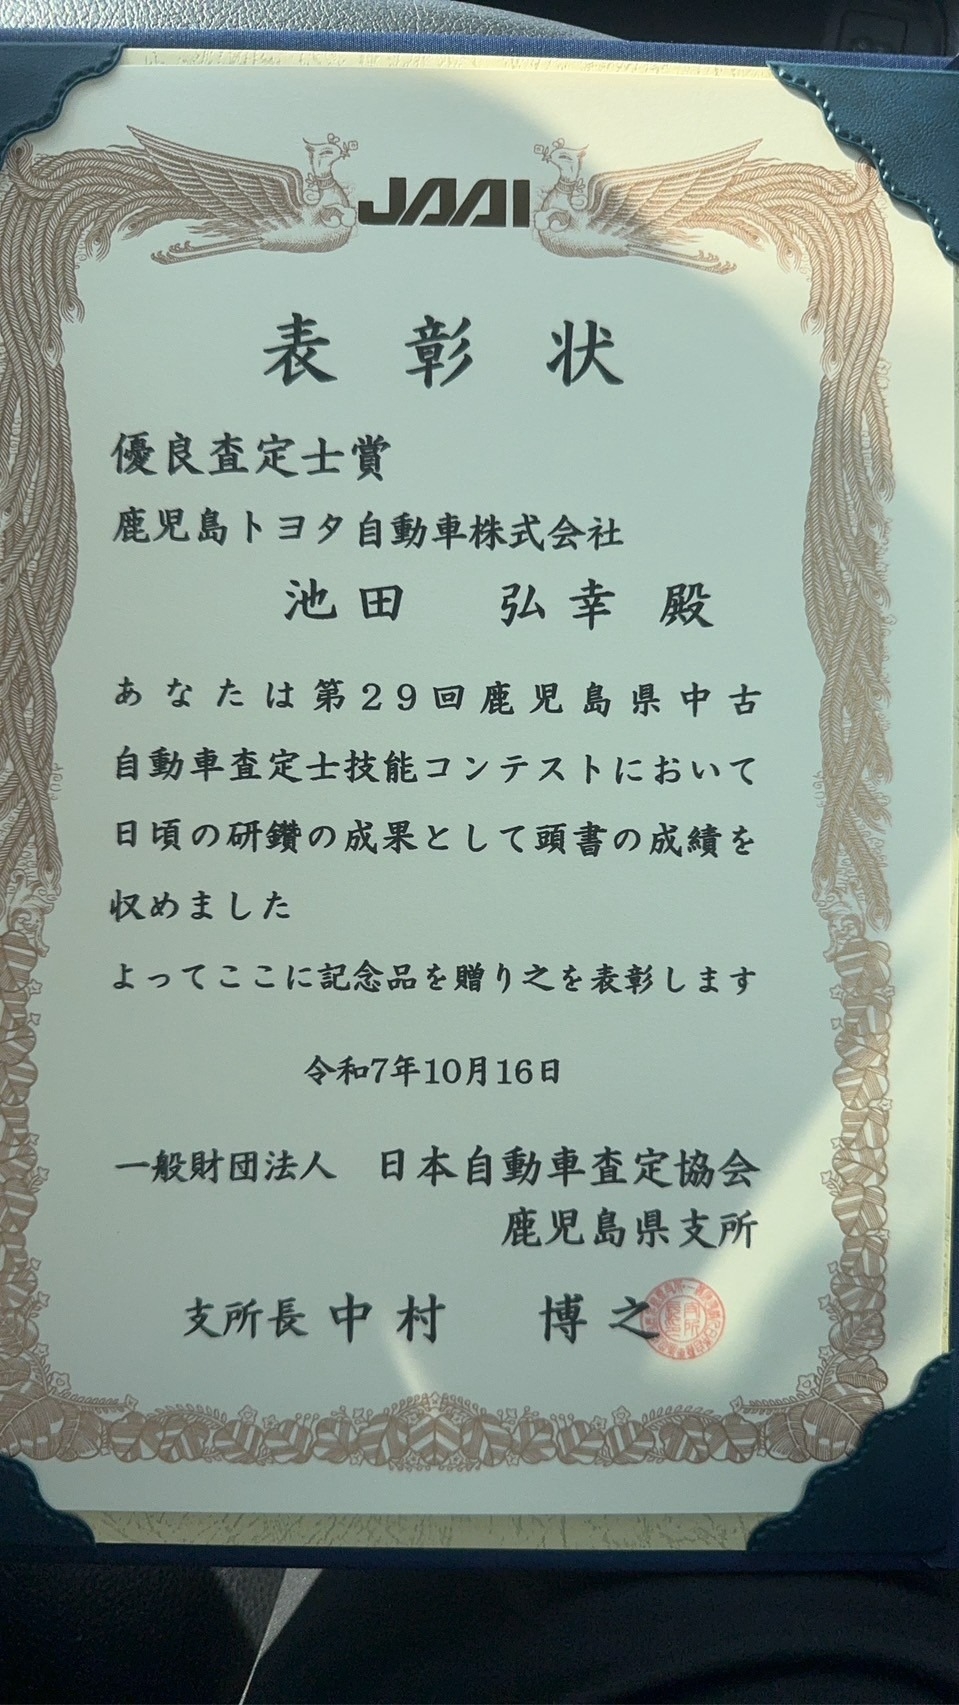 JAAI
表彰状
優良査定士賞
鹿児島トヨタ自動車株式会社
池田 弘幸 殿
あなたは第29回鹿児島県中古
自動車査定士技能コンテストにおいて
日頃の研鑽の成果として頭書の成績を
収めました
よってここに記念品を贈り之を表彰します
令和7年10月16日
一般財団法人 日本自動車査定協会
鹿児島県支所
支所長 中村 博之